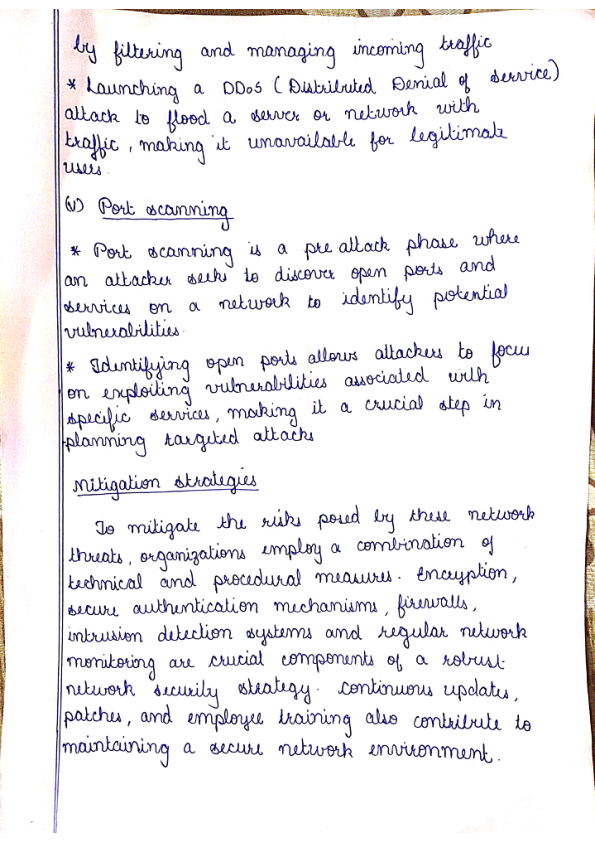 by filtering and managing incoming traffic
* Launching a DDoS (Distributed Denial of service)
attack to flood a server or network with
traffic, making it unavailable for legitimate
users.
(v) Port scanning
* Port scanning is a pre attack phase where
an attacker seeks to discover open ports and
services on a network to identify potential
vulnerabilities.
* Identifying open ports allows attackers to focus
on exploiting vulnerabilities associated with
specific services, making it a crucial step in
planning targeted attacks
Mitigation strategies
To mitigate the risks posed by these network
threats, organizations employ a combination of
technical and procedural measures. Encryption,
secure authentication mechanisms, firewalls,
intrusion detection systems and regular network
monitoring are crucial components of a robust
network security strategy. Continuous updates,
patches, and employee training also contribute to
maintaining a secure network environment.